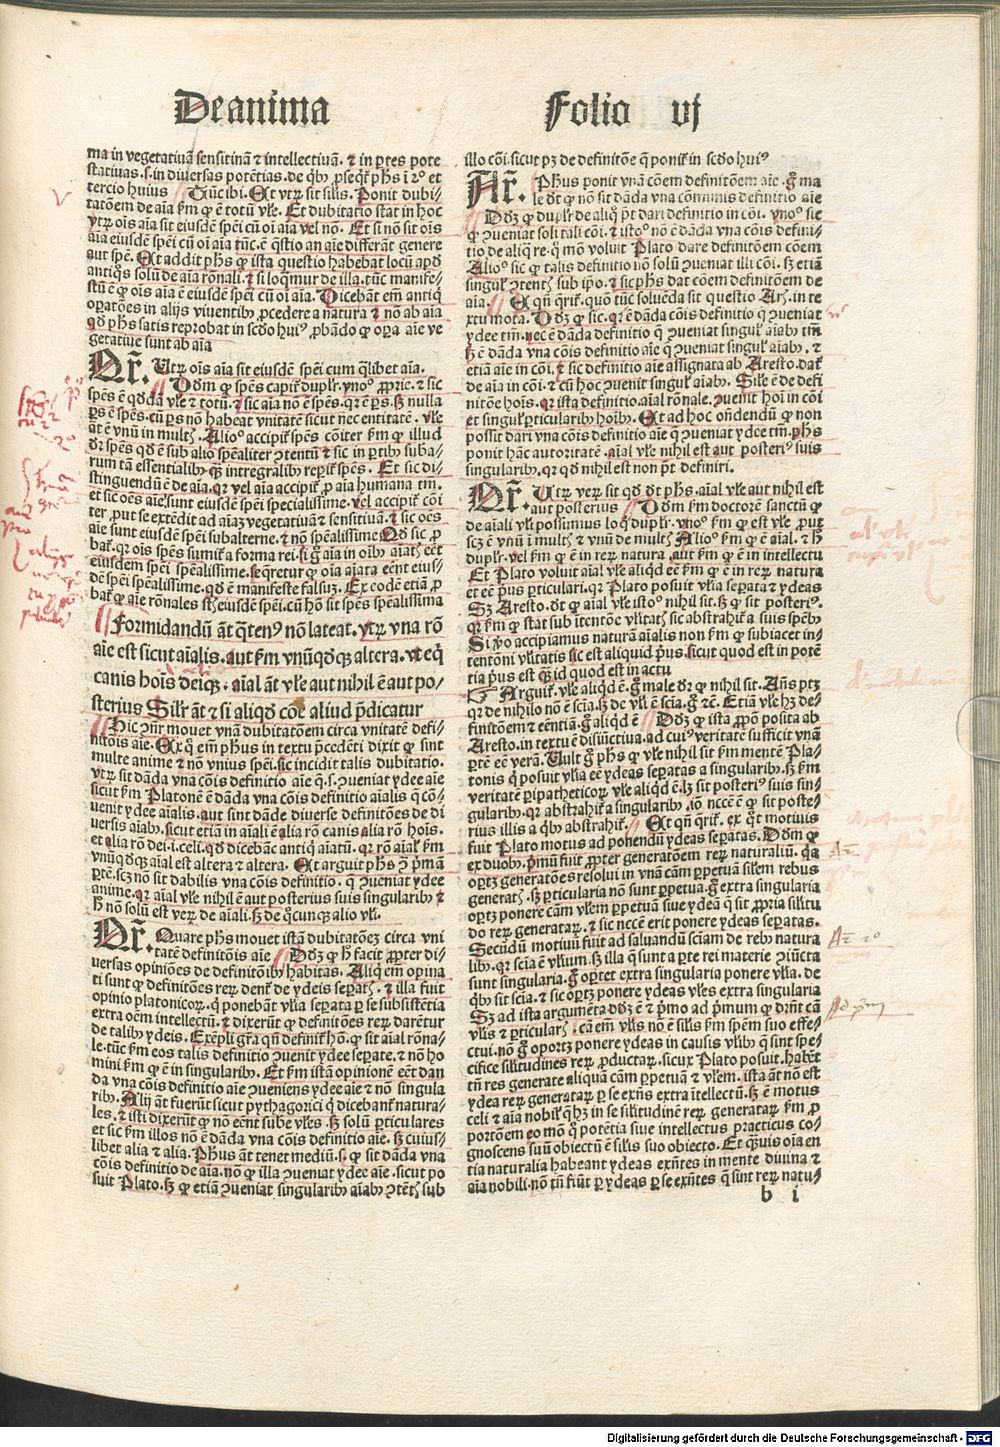 De anima
Folio vj
ma in vegetatiuā sensitinā ⁊ intellectiuā. ⁊ in ꝑtes pote
statiuas. s. in diuersas potētias. de q̇bꝫ ꝓseq̇t᷑ ph̄s i 2º et
tercio huius Tūc ibi. Et vtꝝ sit silis. Ponit dubi-
tatōem de aīa ẜm ꝙ ē totū vl̄e. Et dubitatio stat in hoc
vtꝝ oīs aīa sit eiusdē spēi cū oī aīa vel nō. Et si nō sit oīs
aīa eiusdē spēi cū oī aīa tūc. ē q̄stio an aīe differāt genere
aut spē. Et addit ph̄s ꝙ ista questio habebat locū apd̓
antiq̇s solū de aīa rōnali. ⁊ si loq̇mur de illa. tūc manife-
stū ē ꝙ oīs aīa ē eiusdē spēi cū oī aīa. Dicebāt em̄ antiq̇
oꝑatōes in alijs viuentibꝫ ꝓcedere a natura ⁊ nō ab aīa
qd̓ ph̄s satis reprobat in scd̓o huiꝰ. ꝓbādo ꝙ oꝑa aīe ve
getatiue sunt ab aīa
Qr̄. Utꝝ oīs aīa sit eiusdē spēi cum q̄libet aīa.
Dōm ꝙ spēs capit᷑ duplr̄. vnoº ꝓprie. ⁊ sic
spēs ē qd̓dā vl̄e ⁊ totū. ⁊ sic aīa nō ē spēs. qr ē ꝑs. sꝫ nulla
ꝑs ē spēs. cū ꝑs nō habeat vnitatē sicut nec entitatē. vl̄e
āt ē vnū in multꝭ. Alioº accipit᷑ spēs cōiter ẜm ꝙ illud
dr̄ spēs qd̓ ē sub alio spēaliter ↄtentū ⁊ sic in ꝑtibꝫ suba-
rum tā essentialibꝫ qꝫ intregralibꝫ reperit᷑ spēs. Et sic di-
stinguendū ē de aīa. qr vel aīa accipit᷑ ꝓ aīa humana tm̄.
et sic oēs aīe sunt eiusdē spēi specialissime. vel accipit᷑ cōi
ter. put se extēdit ad aīaꝫ vegetatiuā ⁊ sensitiuā. ⁊ sic oēs
aīe sunt eiusdē spēi subalterne. ⁊ nō spēalissime Qd̓ sic ꝓ
bat᷑. qr oīs spēs sumit᷑ a forma rei. si g̊ aīa in oībꝫ aīatꝭ eēt
eiusdem spēi spēalissime. seq̄retur ꝙ oīa aīata eēnt eius-
dē spēi spēalissime. qd̓ ē manifeste falsuꝫ. Ex eodē etiā ꝓ
bat᷑ ꝙ aīe rōnales st̄ eiusdē spēi. cū hō sit spēs spēalissima
Formidandū āt q̄tenꝰ nō lateat. vtꝝ vna rō
aīe est sicut aīalis. aut ẜm vnūqd̓qꝫ altera. vt eq̇
canis hoīs deiqꝫ. aīal āt vl̄e aut nihil ē aut po-
sterius Silr̄ āt ⁊ si aliqd̓ cōe aliud p̄dicatur
Hic ꝯn̄r mouet vnā dubitatōem circa vnitatē defi-
nitōis aīe. Ex q̊ em̄ phūs in textu p̄cedēti dixit ꝙ sint
multe anime ⁊ nō vnius spēi. sic incidit talis dubitatio.
vtꝝ sit dādа vna cōis definitio aīe q̄. s. ↄueniat ydee aīe
sicut ẜm Platonē ē dāda vna cōis definitio aīalis q̄ cō-
uenit ydee aīalis. aut sint dāde diuerse definitōes de di
uersis aīabꝫ. sicut etiā in aīali ē alia rō canis alia rō hoīs.
et alia rō dei. i. celi. qd̓ dicebāt antiq̇ aīatū. qr rō aīal̓ ẜm
vnūqd̓qꝫ aīal est altera ⁊ altera. Et arguit ph̄s ↄ p̄mā
ꝑtē. scꝫ nō sit dabilis vna cōis definitio. q̄ ↄueniat ydee
anime. qr aīal vl̄e nihil ē aut posterius suis singularibꝫ ⁊
h̄ nō solū est veꝝ de aīali. sꝫ de q̊cunqꝫ alio vl̓i.
Qr̄. Quare ph̄s mouet istā dubitatōeꝫ circa vni
tatē definitōis aīe Dōꝫ ꝙ h̄ facit ꝓpter di-
uersas opiniōes de definitōibꝫ habitas. Aliq̇ em̄ opina
ti sunt ꝙ definitōes reꝝ dent᷑ de ydeis seꝑatꝭ. ⁊ illa fuit
opinio platonicoꝝ. q̇ ponebāt vl̓ia seꝑata ꝑ se subsistētia
extra oēm intellectū. ⁊ dixerūt ꝙ definitōes reꝝ darētur
de talibꝫ ydeis. Exēpli gr̄a qn̄ definit᷑ hō. ꝙ sit aīal rōna-
le. tūc ẜm eos talis definitio ↄuenit ydee seꝑate. ⁊ nō ho
mini ẜm ꝙ ē in singularibꝫ. Et ẜm istā opinionē eēt dan
da vna cōis definitio aīe ↄueniens ydee aīe ⁊ nō singula
ribꝫ. Alij āt fuerūt sicut pythagorici q̇ dicebant natura-
les. ⁊ isti dixerūt ꝙ nō eēnt sube vl̓es. sꝫ solū ꝑticulares
et sic ẜm illos nō ē dāda vna cōis definitio aīe. sꝫ cuius-
libet alia ⁊ alia. Phūs āt tenet mediū. s. ꝙ sit dāda vna
cōis definitio de aīa. nō ꝙ illa ↄueniat ydee aīe. sicut po
suit Plato. sꝫ ꝙ etiā ↄueniat singularibꝫ aīabꝫ ↄtētꝭ sub
illo cōi. sicut pꝫ de definitōe q̄ ponit᷑ in scd̓o huiꝰ
Ar̄. Phūs ponit vnā cōem definitōem aīe. g̊ ma
le dr̄ ꝙ nō sit dāda vna cōmunis definitio aīe
Dōꝫ ꝙ duplr̄ de aliq̊ pt̄ dari definitio in cōi. vnoº sic
ꝙ ↄueniat soli tali cōi. ⁊ istoº nō ē dāda vna cōis defini-
tio de aliq̊ re. q̊ mō voluit Plato dare definitōem cōem
Alioº sic ꝙ talis definitio nō solū ↄueniat illi cōi. sꝫ etiā
singul̓ ↄtentꝭ sub ip̄o. ⁊ sic ph̄s dat cōem definitōem de
aīa. Et qn̄ q̄rit᷑. quō tūc soluēda sit questio Arꝭ. in te
xtu mota. Dōꝫ ꝙ sic. qr ē dāda cōis definitio q̄ ↄueniat
ydee tm̄. nec ē dāda definitio q̄ ↄueniat singul̓ aīabꝫ tm̄
sꝫ ē dāda vna cōis definitio aīe q̄ ↄueniat singul̓ aīabꝫ. ⁊
etiā aīe in cōi. ⁊ sic definitio aīe assignata ab Aresto. dat᷑
de aīa in cōi. ⁊ cū hoc ↄuenit singul̓ aīabꝫ. Sil̓e ē de defi
nitōe hoīs. qr ista definitio. aīal rōnale. ↄuenit hoī in cōi
et singul̓ ꝑticularibꝫ hoībꝫ. Et ad hoc oñdendū ꝙ non
possit dari vna cōis definitio aīe q̄ ↄueniat ydee tm̄. ph̄s
ponit hāc autoritatē. aīal vl̄e nihil est aut posteriꝰ suis
singularibꝫ. qr qd̓ nihil est non pt̄ definiri.
Qr̄. Utꝝ veꝝ sit qd̓ dt̄ ph̄s. aīal vl̄e aut nihil est
aut posterius Dōm ꝙ ẜm doctorē sanctū ꝙ
de aīali vl̓i possumus loq̇ duplr̄. vnoº ẜm ꝙ est vl̄e. put
scꝫ ē vnū ī multꝭ ⁊ vnū de multꝭ Alioº ẜm ꝙ ē aīal. ⁊ h̄
duplr̄. vel ẜm ꝙ ē in reꝝ natura. aut ẜm ꝙ ē in intellectu
Et Plato voluit aīal vl̄e aliqd̓ eē ẜm ꝙ ē in reꝝ natura
et eē pⁱus ꝑticulari. qr Plato posuit vl̓ia seꝑata ⁊ ydeas
Sꝫ Aresto. dt̄ ꝙ aīal vl̄e istoº nihil sit. sꝫ ꝙ sit posteriꝰ.
qr ẜm ꝙ stat sub ītentōe vl̓itatꝭ sic abstrahit᷑ a suis spēbꝫ
Si ꝟo accipiamus naturā aīalis non ẜm ꝙ subiacet in-
tentōni vl̓itatis sic est aliquid pⁱus. sicut quod est in potē
tia pⁱus est qꝫ id quod est in actu
☞ Arguit᷑. vl̄e aliqd̓ ē. g̊ male dr̄ ꝙ nihil sit. Añs ptꝫ
qr de nihilo nō ē scīa. sꝫ de vl̓i ē scīa. g̊ ⁊c̄. Etiā vl̄e hꝫ de-
finitōem ⁊ eentiā. g̊ aliqd̓ ē Dōꝫ ꝙ ista ꝓpō posita ab
Aresto. in textu ē disiūctiua. ad cuiꝰ veritatē sufficit vnā
ꝑtē eē verā. Uult g̊ ph̄s ꝙ vl̄e nihil sit ẜm mentē Pla-
tonis q̇ posuit vl̓ia eē ydeas seꝑatas a singularibꝫ. sꝫ ẜm
veritatē ꝑipatheticoꝝ vl̄e aliqd̓ ē. lꝫ sit posteriꝰ suis sin-
gularibꝫ. qr abstrahit᷑ a singularibꝫ. iō nccē ē ꝙ sit poste-
rius illis a q̇bꝫ abstrahit᷑. Et qn̄ q̄rit᷑. ex q̊t motiuis
fuit Plato motus ad ponendū ydeas seꝑatas. Dōm ꝙ
ex duobꝫ. p̄mū fuit ꝓpter generatōem reꝝ naturaliū. qꝛ
oportꝫ generatōes resolui in vnā cām ꝑpetuā silem rebus
generatꝭ. sꝫ ꝑticularia nō sunt ꝑpetua. g̊ extra singularia
oportꝫ ponere cām vl̓em ꝑpetuā siue ydeā q̄ sit ꝓpria silitu
do reꝝ generataꝝ. ⁊ sic nccē erit ponere ydeas seꝑatas.
Secūdū motiuū fuit ad saluandū sciam de rebꝫ natura
libꝫ. qr scīa ē vl̓ium. sꝫ illa q̄ sunt a ꝑte rei materie ↄiūcta
sunt singularia. g̊ oportet extra singularia ponere vl̓ia. de
q̇bꝫ sit scīa. ⁊ sic oportꝫ ponere ydeas vl̓es extra singularia
Sꝫ ad ista argumēta dōꝫ ē ⁊ p̄mo ad p̄mum ꝙ dr̄nt cā
vl̓is ⁊ ꝑticularꝭ. cā em̄ vl̓is nō ē silis ẜm spēm suo effe-
ctui. nō g̊ oportꝫ ponere ydeas in causis vl̓ibꝫ q̄ sint spe-
cifice silitudines reꝝ ꝓductaꝝ. sicut Plato posuit. habēt
tn̄ res generate aliquā cām ꝑpetuā ⁊ vl̓em. ista āt nō est
ydea reꝝ generataꝝ ꝑ se exñs extra ītellectū. sꝫ ē motus
celi ⁊ aīa nobil̓ q̄ hꝫ in se silitudinē reꝝ generataꝝ ẜm ꝓ
portōem eo mō q̊ potētia siue intellectus practicus co-
gnoscens suū obiectū ē silis suo obiecto. Et q̄uis oīa en
tia naturalia habeant ydeas exñtes in mente diuina ⁊
aīa nobili. nō tn̄ fiūt ꝑ ydeas ꝑ se exñtes q̄ sint reꝝ natu-
b i
Digitalisierung gefördert durch die Deutsche Forschungsgemeinschaft - DFG